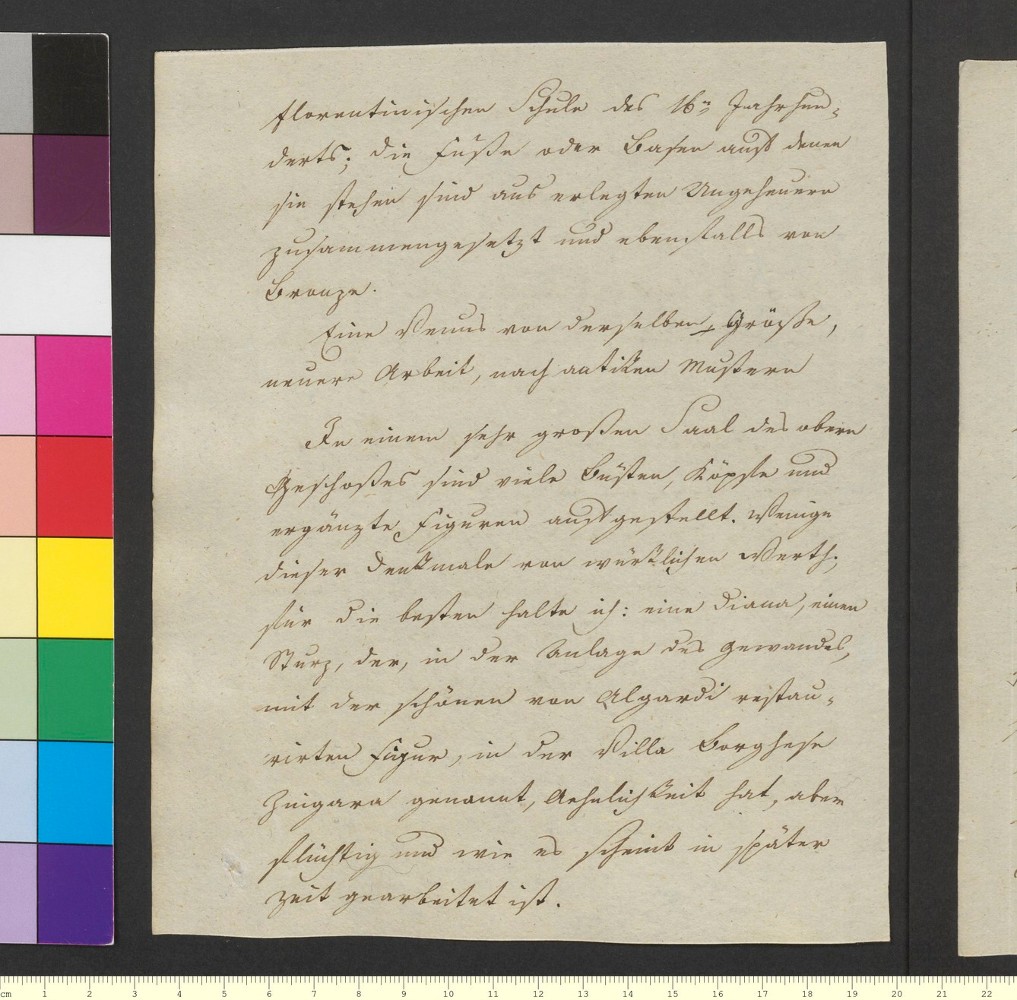 florentinischen Schule des 16n Jahrhun-
derts; die Füße oder Basen auf denen
sie stehen sind aus erlegten Ungeheuern
zusammengesetzt und ebenfalls von
Bronze.
Eine Venus von derselben Größe,
neuere Arbeit, nach antiken Mustern
In einem sehr großen Saal des obern
Geschoßes sind viele Büsten, Köpfe und
ergänzte Figuren aufgestellt. Wenige
dieser Denkmale von würklichen Werth;
für die besten halte ich: eine Diana, einen
Sturz, der, in der Anlage des Gewandes,
mit der schönen von Algardi restau-
rirten Figur, in der Villa Borghese
Zingara genannt, Aehnlichkeit hat, aber
flüchtig und wie es scheint in später
Zeit gearbeitet ist.
cm 1 2 3 4 5 6 7 8 9 10 11 12 13 14 15 16 17 18 19 20 21 22